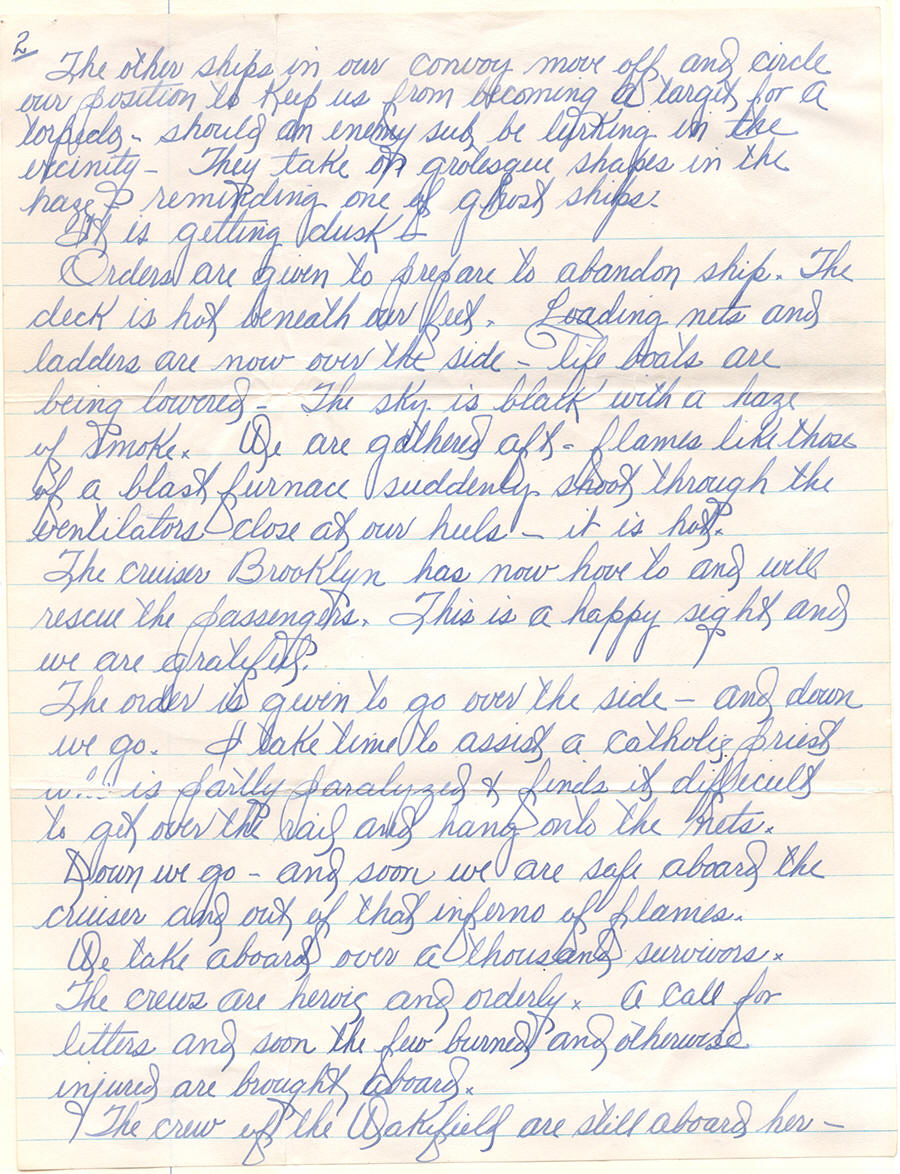 2
The other ships in our convoy move off and circle
our position to keep us from becoming a target for a
torpedo - should an enemy sub, be lurking in the
vicinity - They take on grolesque shapes in the
haze - reminding one of ghost ships.
It is getting dusk -
Orders are given to prepare to abandon ship. The
deck is hot beneath our feet. Loading nets and
ladders are now over the side - life boats are
being lowered - The sky is black with a haze
of smoke. We are gathered aft - flames like those
of a blast furnace suddenly shoot through the
ventilators close at our heels - it is hot.
The cruiser Brooklyn has now hove to and will
rescue the passengers. This is a happy sight and
we are grateful.
The order is given to go over the side - and down
we go. I take time to assist a catholic priest
is partly paralyzed & finds it difficult
to get over the rail and hang onto the nets.
Down we go - and soon we are safe aboard the
cruiser and out of that inferno of flames.
We take aboard over a thousand survivors.
The crews are heroic and orderly. A call for
litters and soon the few burned and otherwise
injured are brought aboard.
The crew of the Wakefield are still aboard her -